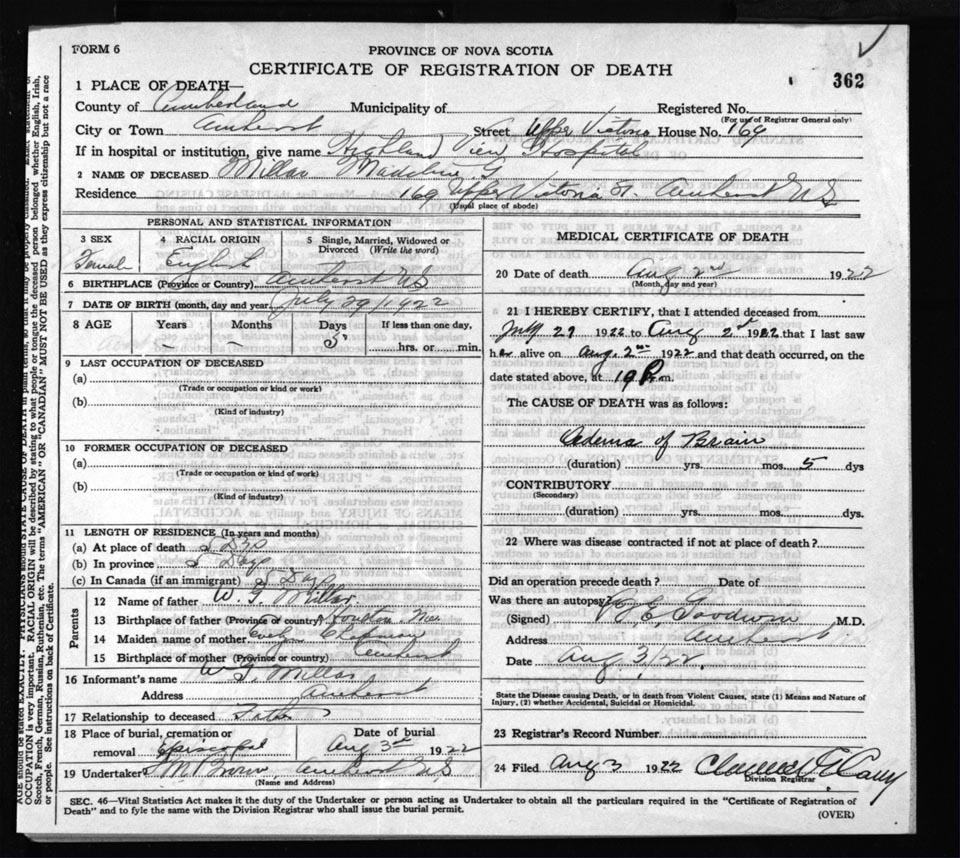 FORM 6
PROVINCE OF NOVA SCOTIA
CERTIFICATE OF REGISTRATION OF DEATH
362
1 PLACE OF DEATH—
County of Cumberland Municipality of Registered No.
(For use of Registrar General only)
City or Town Amherst Street Upper Victoria House No. 169
If in hospital or institution, give name Highland View Hospital
2 NAME OF DECEASED Millar Madeline G
Residence 169 Upper Victoria St. Amherst NS
(Usual place of abode)
PERSONAL AND STATISTICAL INFORMATION
3 SEX Female
4 RACIAL ORIGIN English
5 Single, Married, Widowed or Divorced (Write the word)
6 BIRTHPLACE (Province or Country) Amherst NS
7 DATE OF BIRTH (month, day and year) July 29/1922
8 AGE Years Months Days If less than one day,
– – 5 hrs. or min.
9 LAST OCCUPATION OF DECEASED
(a)
(Trade or occupation or kind or work)
(b)
(Kind of industry)
10 FORMER OCCUPATION OF DECEASED
(a)
(Trade or occupation or kind of work)
(b)
(Kind of industry)
11 LENGTH OF RESIDENCE (In years and months)
(a) At place of death 5 Days
(b) In province 5 Days
(c) In Canada (if an immigrant) 5 Days
Parents
12 Name of father W. G. Millar
13 Birthplace of father (Province or country)
14 Maiden name of mother Chapman
15 Birthplace of mother (Province or country) Amherst
16 Informant's name W G. Millar
Address Amherst
17 Relationship to deceased Father
18 Place of burial, cremation or removal Episcopal
Date of burial Aug 3rd 1922
19 Undertaker Brown Amherst NS
(Name and Address)
MEDICAL CERTIFICATE OF DEATH
20 Date of death Aug 2nd 1922
(Month, day and year)
21 I HEREBY CERTIFY, that I attended deceased from
July 29 1922 to Aug 2nd 1922 that I last saw
her alive on Aug. 2nd 1922 and that death occurred, on the
date stated above, at P.m.
The CAUSE OF DEATH was as follows:
Œdema of Brain
(duration) yrs. mos. 5 dys
CONTRIBUTORY
(Secondary)
(duration) yrs. mos. dys.
22 Where was disease contracted if not at place of death?
Did an operation precede death? Date of
Was there an autopsy?
(Signed) Goodwin M.D.
Address Amherst
Date Aug 3/22.
State the Disease causing Death, or in death from Violent Causes, state (1) Means and Nature of
Injury, (2) whether Accidental, Suicidal or Homicidal.
23 Registrar's Record Number
24 Filed Aug 3 1922
Division Registrar
SEC. 46—Vital Statistics Act makes it the duty of the Undertaker or person acting as Undertaker to obtain all the particulars required in the "Certificate of Registration of
Death" and to fyle the same with the Division Registrar who shall issue the burial permit.
(OVER)
OCCUPATION is very important. RACIAL ORIGIN will be described by stating to what people or tongue the deceased person belonged whether English, Irish,
Scotch, French, German, Russian, Ruthenian, etc. The terms "AMERICAN" OR "CANADIAN" MUST NOT BE USED as they express citizenship but not a race
or people. See instructions on back of Certificate.